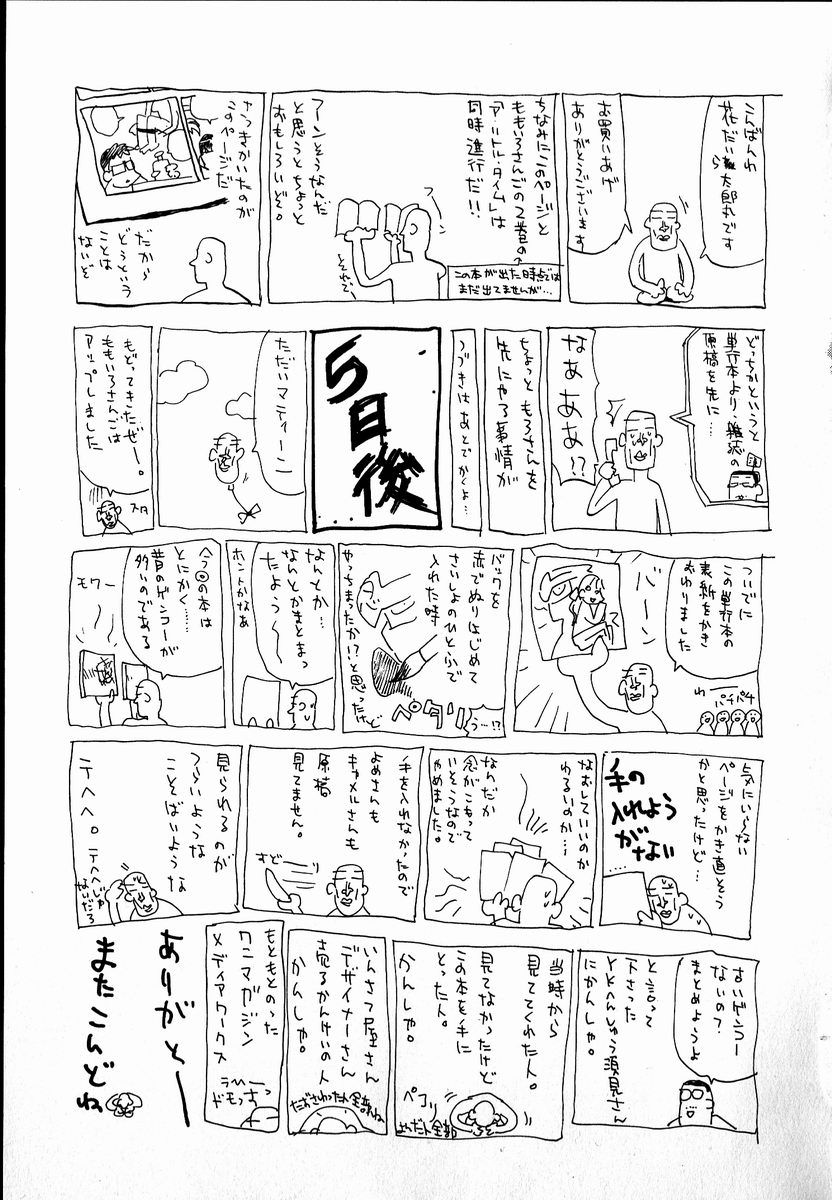 こんばんわ
花だいら太郎丸です
お買いあげ
ありがとうございます
ちなみにこのページと
ももいろさんごの2巻の
「アットル・タイム」は
同時進行だ!!
この本が出た時点では
まだ出てませんが…
フーンそうなんだ
と思うとちょっと
おもしろいぞ。
フーン
それで
さっきかいたのが
このページだ
だから
どうという
ことは
ないぞ
どっちかというと
単行本より、雑誌の
原稿を先に…
なぁああ!?
ちょっともろさんを
先にやる事情が
つづきはあとでかくよ…
5日後
ただいマティーン
もどってきたぜー。
ももいろさんごは
アップしました
スタ
ついでに
この単行本の
表紙をかき
おわりました
バーン
わー
パチパチ
バックを
赤でぬりはじめて
さいしょのひとふで
入れた時
ペタリ
う…!?
やっちまったか!?と思ったけど
なんとか…
なんとかまとまっ
たよう〜
ホントかなあ
今回の本は
とにかく……
昔のゲンコーが
多いのである
モワー
気にいらない
ページをかき直そう
かと思ったけど…
手の
入れよう
がない
…
なおしていいのか
わるいのか…
なんだか
念がこもって
いそうなので
やめました。
手を入れなかったので
よめさんも
キャメルさんも
原稿
見てません。
すどーり
見られるのが
つらいような
こそばいような
テヘヘ。
テヘヘじゃ
ないだろ
古いゲンコー
ないの?
まとめようよ
と言って
下さった
YKへんしゅう須見さん
にかんしゃ。
当時から
見ててくれた人。
見てなかったけど
この本を手に
とった人。
かんしゃ。
ペコリ
よめた人全部
いんさつ屋さん
デザイナーさん
売るかんけいの人
かんしゃ。
たずさわった人全部ね
もともとのった
ワニマガジン
メディアワークス
うへー
ドモっさっ
ありがとー
またこんどね